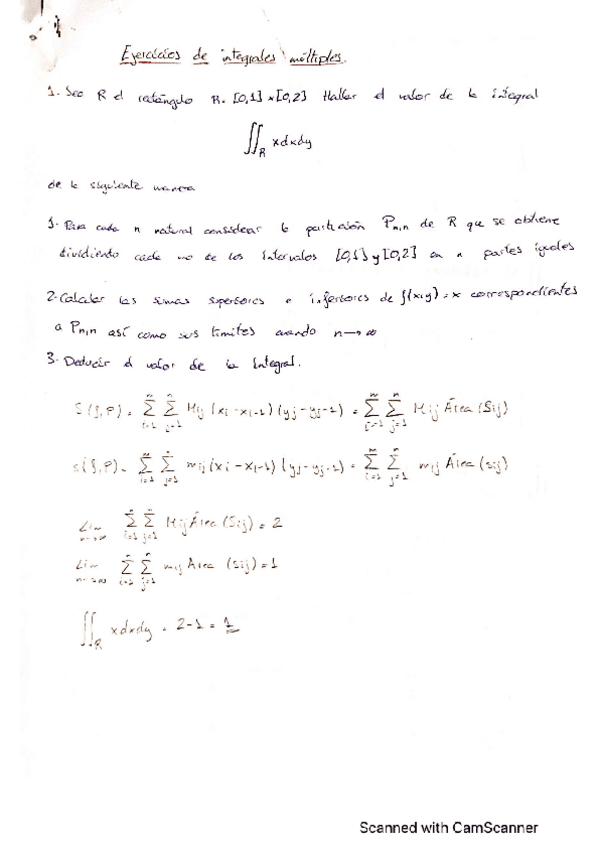 Ejercicios de integrales múltiples.
1. Sea R el rectángulo R = [0,1] x [0,2] Hallar el valor de la integral
∬_R x dx dy
de la siguiente manera
1. Para cada n natural considerar la partición P_{n,n} de R que se obtiene
dividiendo cada uno de los intervalos [0,1] y [0,2] en n partes iguales
2. Calcular las sumas superiores e inferiores de f(x,y) = x correspondientes
a P_{n,n} así como sus límites cuando n → ∞
3. Deducir el valor de la integral.
S(f,P) = Σ_{i=1}^{n} Σ_{j=1}^{n} M_{ij} (x_i - x_{i-1}) (y_j - y_{j-1}) = Σ_{i=1}^{n} Σ_{j=1}^{n} M_{ij} Área (S_{ij})
s(f,P) = Σ_{i=1}^{n} Σ_{j=1}^{n} m_{ij} (x_i - x_{i-1}) (y_j - y_{j-1}) = Σ_{i=1}^{n} Σ_{j=1}^{n} m_{ij} Área (s_{ij})
Lim_{n→∞} Σ_{i=1}^{n} Σ_{j=1}^{n} M_{ij} Área (S_{ij}) = 2
Lim_{n→∞} Σ_{i=1}^{n} Σ_{j=1}^{n} m_{ij} Área (s_{ij}) = 1
∬_R x dx dy = 2 - 1 = 1
Scanned with CamScanner